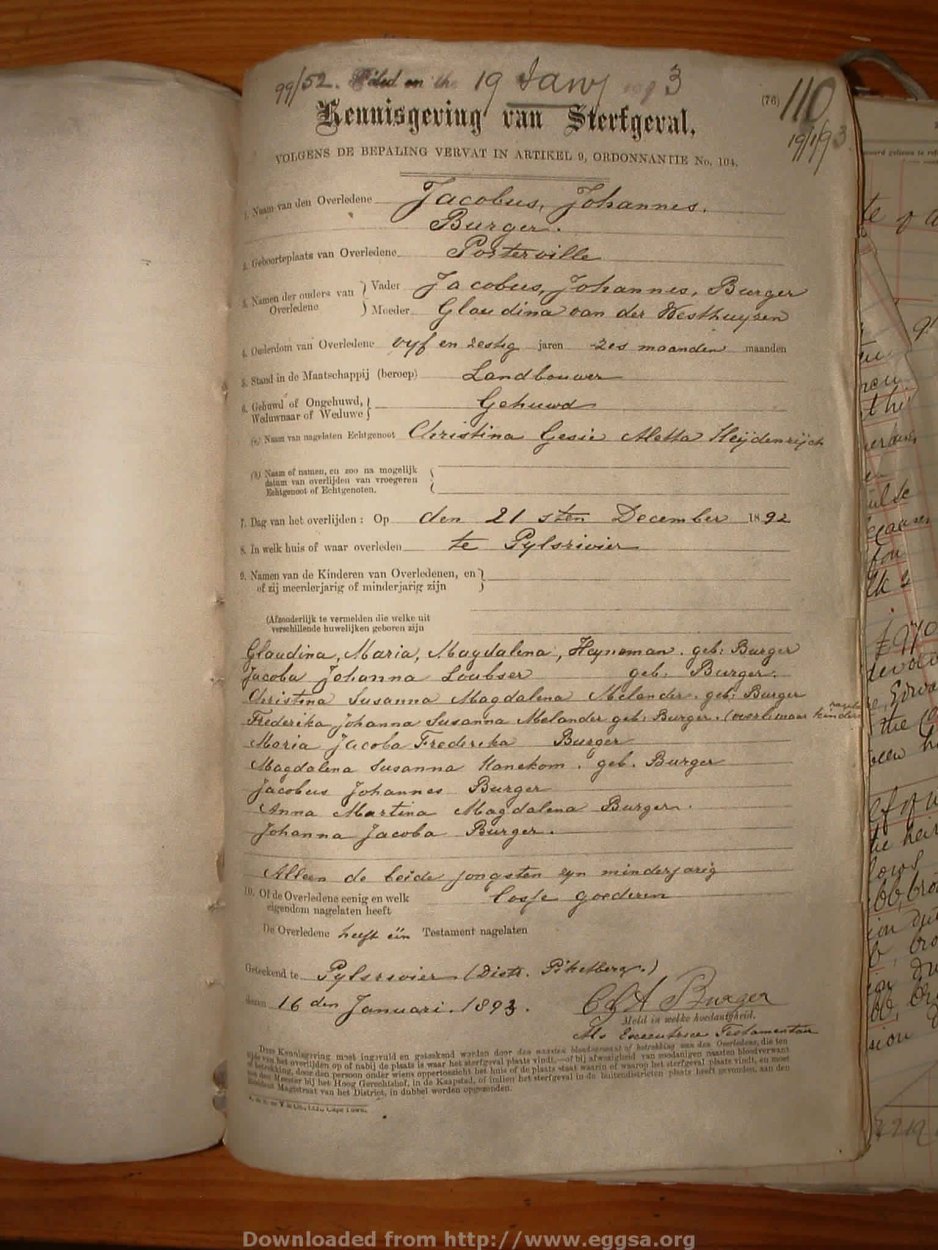 99/52. Filed on the 19 Jany 1893
(76) 110
19/1/93
Kennisgeving van Sterfgeval,
VOLGENS DE BEPALING VERVAT IN ARTIKEL 9, ORDONNANTIE No. 104.
1. Naam van den Overledene Jacobus, Johannes.
Burger.
2. Geboorteplaats van Overledene Porterville
3. Namen der ouders van Overledene } Vader Jacobus, Johannes, Burger
Moeder Glaudina van der Westhuyzen
4. Ouderdom van Overledene vyf en zestig jaren zes maanden maanden
5. Stand in de Maatschappij (beroep) Landbouwer
6. Gehuwd of Ongehuwd, Weduwnaar of Weduwe } Gehuwd
(a) Naam van nagelaten Echtgenoot Christina Gesie Aletta Heijdenrijch
(b) Naam of namen, en zoo na mogelijk
datum van overlijden van vroegeren
Echtgenoot of Echtgenoten.
7. Dag van het overlijden: Op den 21 sten December 1892
8. In welk huis of waar overleden te Pylsrivier
9. Namen van de Kinderen van Overledenen, en
of zij meerderjarig of minderjarig zijn
(Afzonderlijk te vermelden die welke uit
verschillende huwelijken geboren zijn
Glaudina, Maria, Magdalena, Heyneman. geb: Burger
Jacoba Johanna Loubser geb: Burger.
Christina Susanna Magdalena Melander. geb: Burger
Frederika Johanna Susanna Melander geb: Burger. (overl: maar kinders
Maria Jacoba Frederika Burger
Magdalena Susanna Hanekom. geb. Burger
Jacobus Johannes Burger
Anna Martina Magdalena Burger.
Johanna Jacoba Burger.
Alleen de beide jongsten zyn minderjarig
10. Of de Overledene eenig en welk
eigendom nagelaten heeft losse goederen
De Overledene heeft één Testament nagelaten
Geteekend te Pylsrivier (Distr. Piketberg.)
denn 16 den Januari. 1893. C G A Burger
Meld in welke hoedanigheid.
Als Executrice Testamentair
Deze Kennisgeving moet ingevuld en geteekend worden door den naasten bloedverwant of betrekking van den Overledene, die ten
tijde van het overlijden op of nabij de plaats is waar het sterfgeval plaats vindt,—of bij afwezigheid van zoodanigen naasten bloedverwant
of betrekking, door den persoon onder wiens oppertoezicht het huis of de plaats staat waarin of waarop het sterfgeval plaats vindt, en moet
aan den Meester bij het Hoog Gerechtshof, in de Kaapstad, of indien het sterfgeval in de buitendistricten plaats heeft gevonden, aan den
Resident Magistraat van het District, in dubbel worden opgezonden.
Downloaded from http://www.eggsa.org